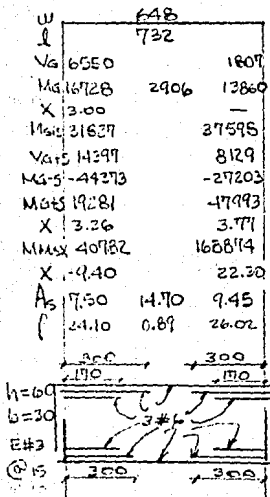 w 648
l 732
VG 6550 1807
MG 16728 2906 13860
X 3.00 —
MGis 31837 37598
VG+S 14397 8129
MG-S -44373 -27203
MG+S 19281 -47993
X 3.26 3.77
MMax 40782 168874
X -9.40 22.30
As 17.50 14.70 9.45
f 24.10 0.89 26.02
300 300
170 170
h=60
b=30 3#6
E#3
@ 15 300 300